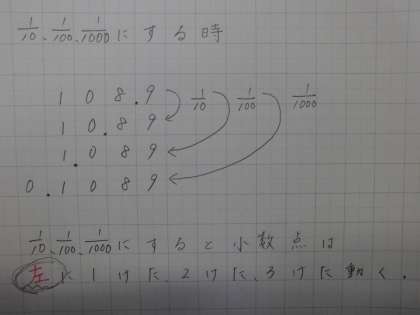 1/10、1/100、1/1000にする時
108.9 1/10 1/100 1/1000
10.89
1.089
0.1089
1/10、1/100、1/1000にすると小数点は
左に1けた、2けた、3けた動く.